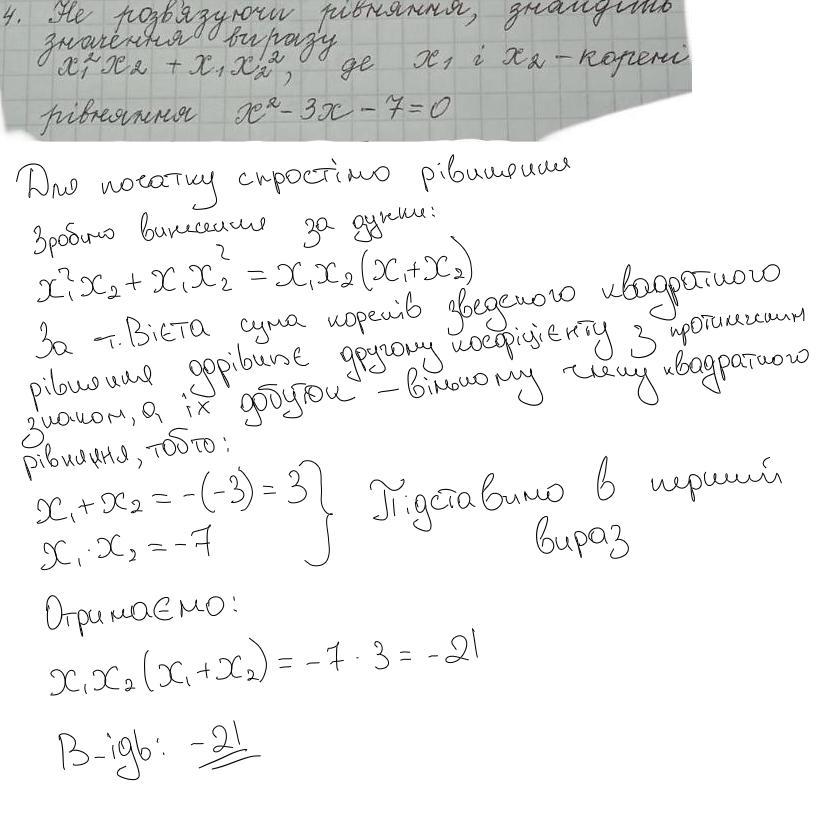 4. Не розв'язуючи рівняння, знайдіть
значення виразу
x₁²x₂ + x₁x₂², де x₁ і x₂ – корені
рівняння x² - 3x - 7 = 0
Для початку спростімо рівняння
Зробімо винесення за дужки:
x₁²x₂ + x₁x₂² = x₁x₂(x₁+x₂)
За т. Вієта сума коренів зведеного квадратного
рівняння дорівнює другому коефіцієнту з протилежним
знаком, а їх добуток – вільному члену квадратного
рівняння, тобто:
x₁ + x₂ = -(-3) = 3
x₁ · x₂ = -7
Підставимо в перший
вираз
Отримаємо:
x₁x₂(x₁+x₂) = -7 · 3 = -21
В-ідь: -21